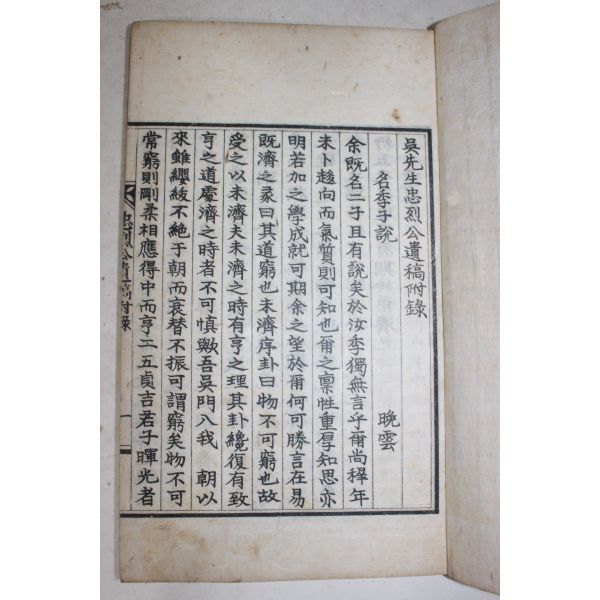 吳先生忠烈公遺稿附錄
名季子說 晩雲
余旣名二子且有說矣於汝季獨無言乎爾尚穉年
未卜趍向而氣質則可知也爾之禀性重厚知思亦
明若加之學成就可期余之望於爾何可勝言在易
旣濟之彖曰其道窮也未濟序卦曰物不可窮也故
受之以未濟夫未濟之時有亨之理其卦纔復有致
亨之道處濟之時者不可愼歟吾吳門入我 朝以
來雖纓紱不絶于朝而衰替不振可謂窮矣物不可
常窮則剛柔相應得中而亨二五貞吉君子暉光者
忠烈公遺稿附錄 一